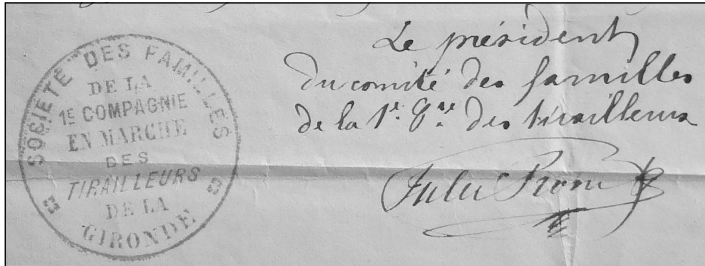 SOCIÉTÉ DES FAMILLES
DE LA
1E COMPAGNIE
EN MARCHE
DES
TIRAILLEURS
DE LA
GIRONDE
Le président
du comité des familles
de la 1e. Cie des tirailleurs
Jules